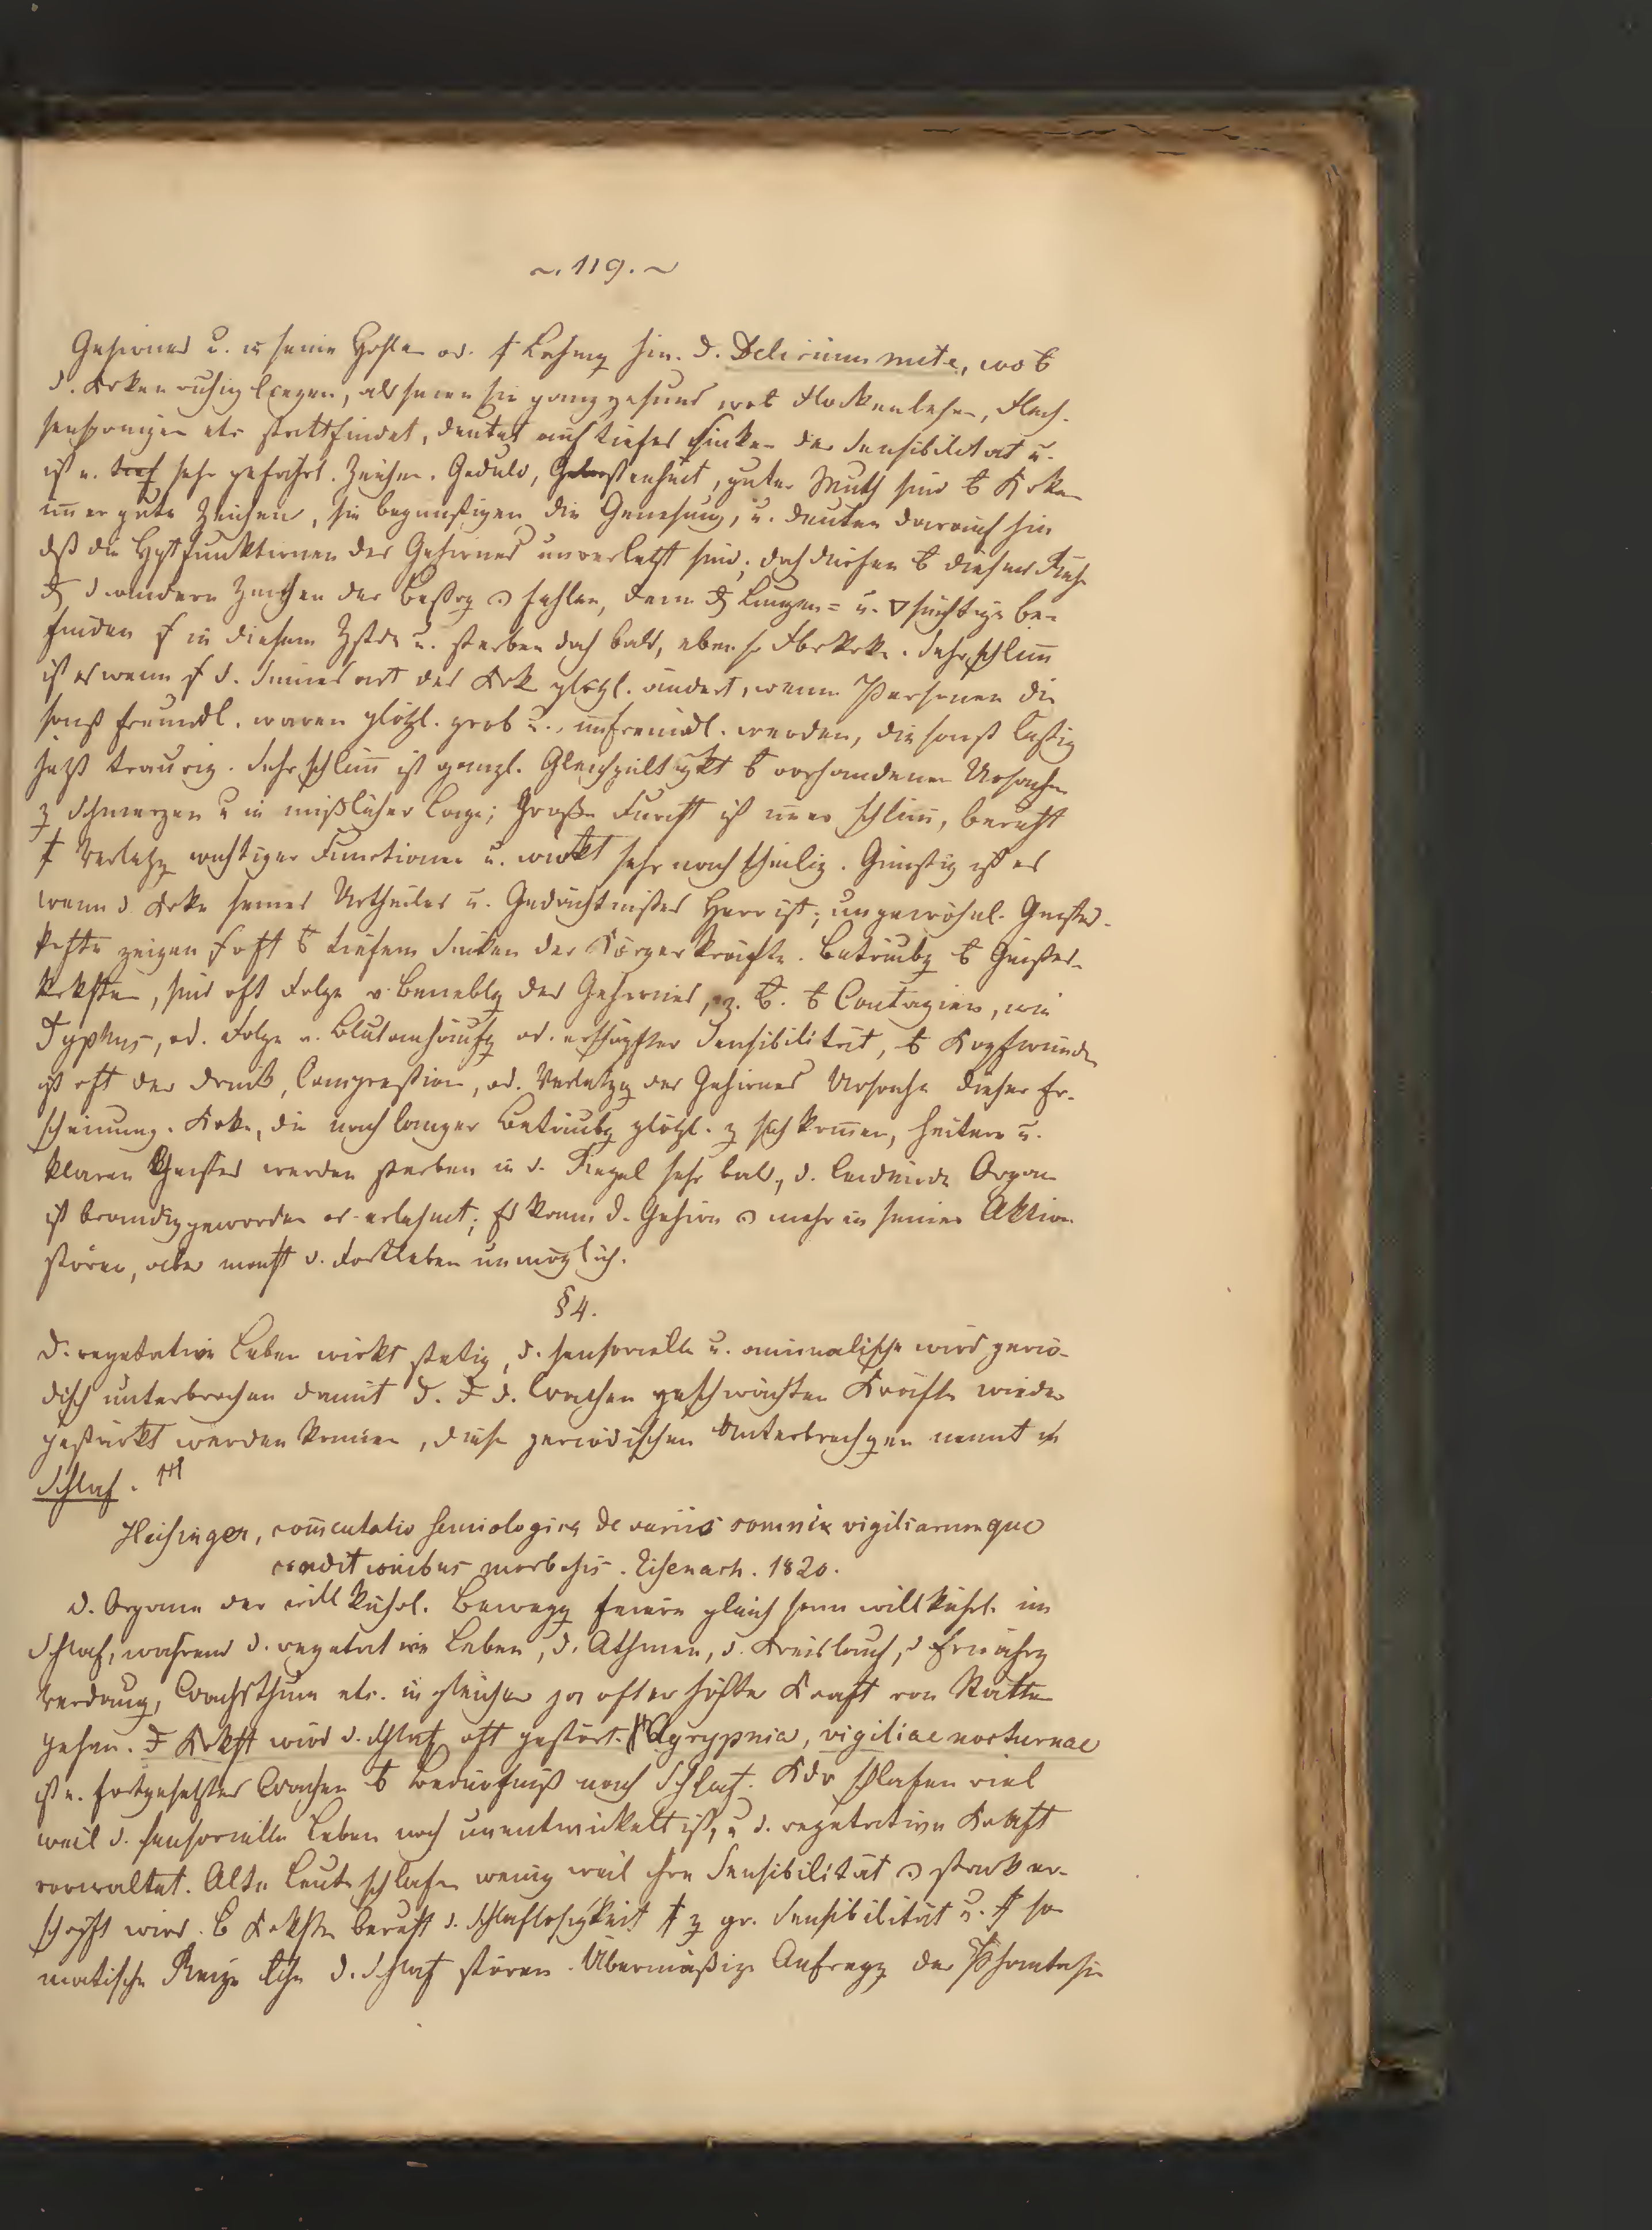 ~. 119. ~
Gehirnes u. in seine Höhlen od. Lähmg hin. D. Delirium mite, wo
d. Krken ruhig liegen, als seien sie ganz gesund, wo Flockenlesen, Flech-
senspringen etc stattfindet, deutet auf tiefes Sinken der Sensibilität u.
ist e. sehr gefährl. Zeichen. Geduld, Gelassenheit, guter Muth sind Krken
im̄er gute Zeichen, sie begünstigen die Genesung, u. deuten darauf hin
dß die Hptfunktionen des Gehirnes unverletzt sind; doch dürfen dieser Ruhe
d andern Zeichen der Beßrg fehlen, denn Lungen= u. süchtige be-
finden in diesem Zstde u. sterben doch bald, eben so Sehr schlim̄
ist es wenn d. Sinnesart des Krk plötzl. ändert, wenn Personen die
sonst freundl. waren plötzl. grob u. unfreundl. werden, die sonst lustig
jetzt traurig. Sehr schlim̄ ist gänzl. Gleichgültigkt vorhandenen Ursachen
z Schmerzen u in mißlicher Lage; Große Furcht ist im̄er schlim̄, beruht
Verletzg wichtiger Functionen u. wirkt sehr nachtheilig. Günstig ist es
wenn d. Krke seines Urtheiles u. Gedächtnißes Herr ist; ungewöhnl. Geistes-
kräfte zeigen oft tiefem Sinken der Körperkräfte. Betäubg Geistes-
krkhten, sind oft Folge v. Beneblg des Gehirnes, z. B. Contagien, wie
Typhus, od. Folge v. Blutanhäufg od. erschöpfter Sensibilität, Kopfwunden
ist oft der Druck, Compreßion, od. Verletzg des Gehirnes Ursache dieser Er-
scheinung. Krke, die nach langer Betäubg plötzl. z sich kom̄en, heitern u.
klaren Geistes werden sterben in d. Regel sehr bald, d. leidende Organ
ist brandig geworden od erlahmt; Es kann d. Gehirn mehr in seiner Aktion
stören, aber macht d. Fortleben unmöglich.
§ 4.
D. vegetative Leben wirkt stetig, d. sensorielle u. animalische wird perio-
disch unterbrochen damit d. d. Wachen geschwächten Kräfte wieder
gestärkt werden können, diese periodischen Unterbrechgen nennt
Schlaf.
Heusinger, com̄entatio semiologica de variis somni vigiliarumque
conditionibus morbosis. Eisenach. 1820.
D. Organe der willkührl. Bewegg feiern gleichsam willkührl. im
Schlaf, während d. vegetative Leben, d. Athmen, d. Kreislauf, d Ernährg
Verdaung, Wachsthum etc. in gleicher ja oft erhöhter Kraft von Statten
gehen. Krkht wird d. Schlaf oft gestört. Agrypnia, vigiliae nocturnae
ist e. fortgesetztes Wachen Bedürfniß nach Schlaf. Kdr schlafen viel
weil d. sensorielle Leben noch unentwickelt ist, u d. vegetative Kraft
vorwaltet. Alte Leute schlafen wenig weil ihre Sensibilität stark er-
schöpft wird. Krkhten beruht d. Schlaflosigkeit z gr. Sensibilität u. so-
matische Reize d. Schlaf stören. Übermäßige Aufregg der Phantasie